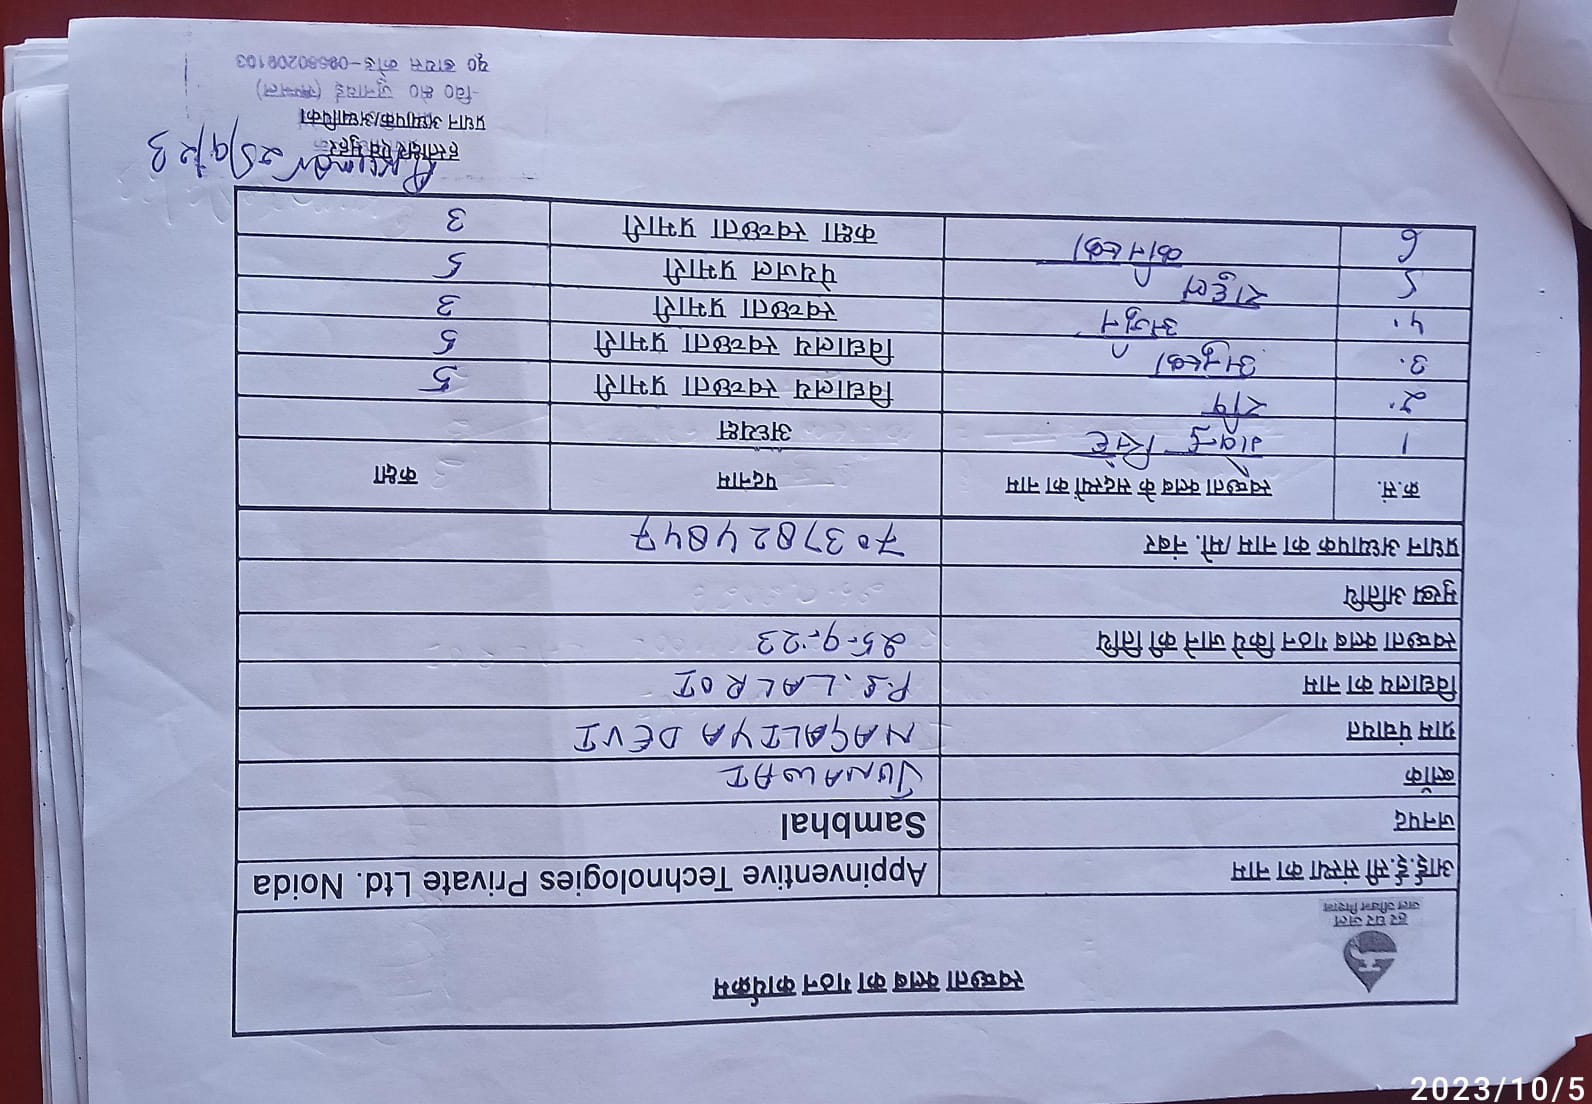 स्वच्छता क्लब का गठन कार्यक्रम
हर घर जल
जल जीवन मिशन
आई.ई.सी संस्था का नाम Appinventive Technologies Private Ltd. Noida
जनपद Sambhal
ब्लॉक JUNAWAI
ग्राम पंचायत NAGALIYA DEVI
विद्यालय का नाम P.S. LALROI
स्वच्छता क्लब गठन किये जाने की तिथि 25-9-23
मुख्य अतिथि
प्रधान अध्यापक का नाम /मो. नंबर 7037824847
क्र.सं. स्वच्छता क्लब के सदस्यों का नाम पदनाम कक्षा
1 सिंह अध्यक्ष
2. विद्यालय स्वच्छता प्रभारी 5
3. विद्यालय स्वच्छता प्रभारी 5
४. अर्जुन स्वच्छता प्रभारी 3
5 राहुल पेयजल प्रभारी 5
6 कक्षा स्वच्छता प्रभारी 3
हस्ताक्षर एवं मुहर
25/9/23
प्रधान अध्यापक/अध्यापिका
वि० क्षे० जुनावई (सम्भल)
यू डायस कोड-09580209103
2023/10/5